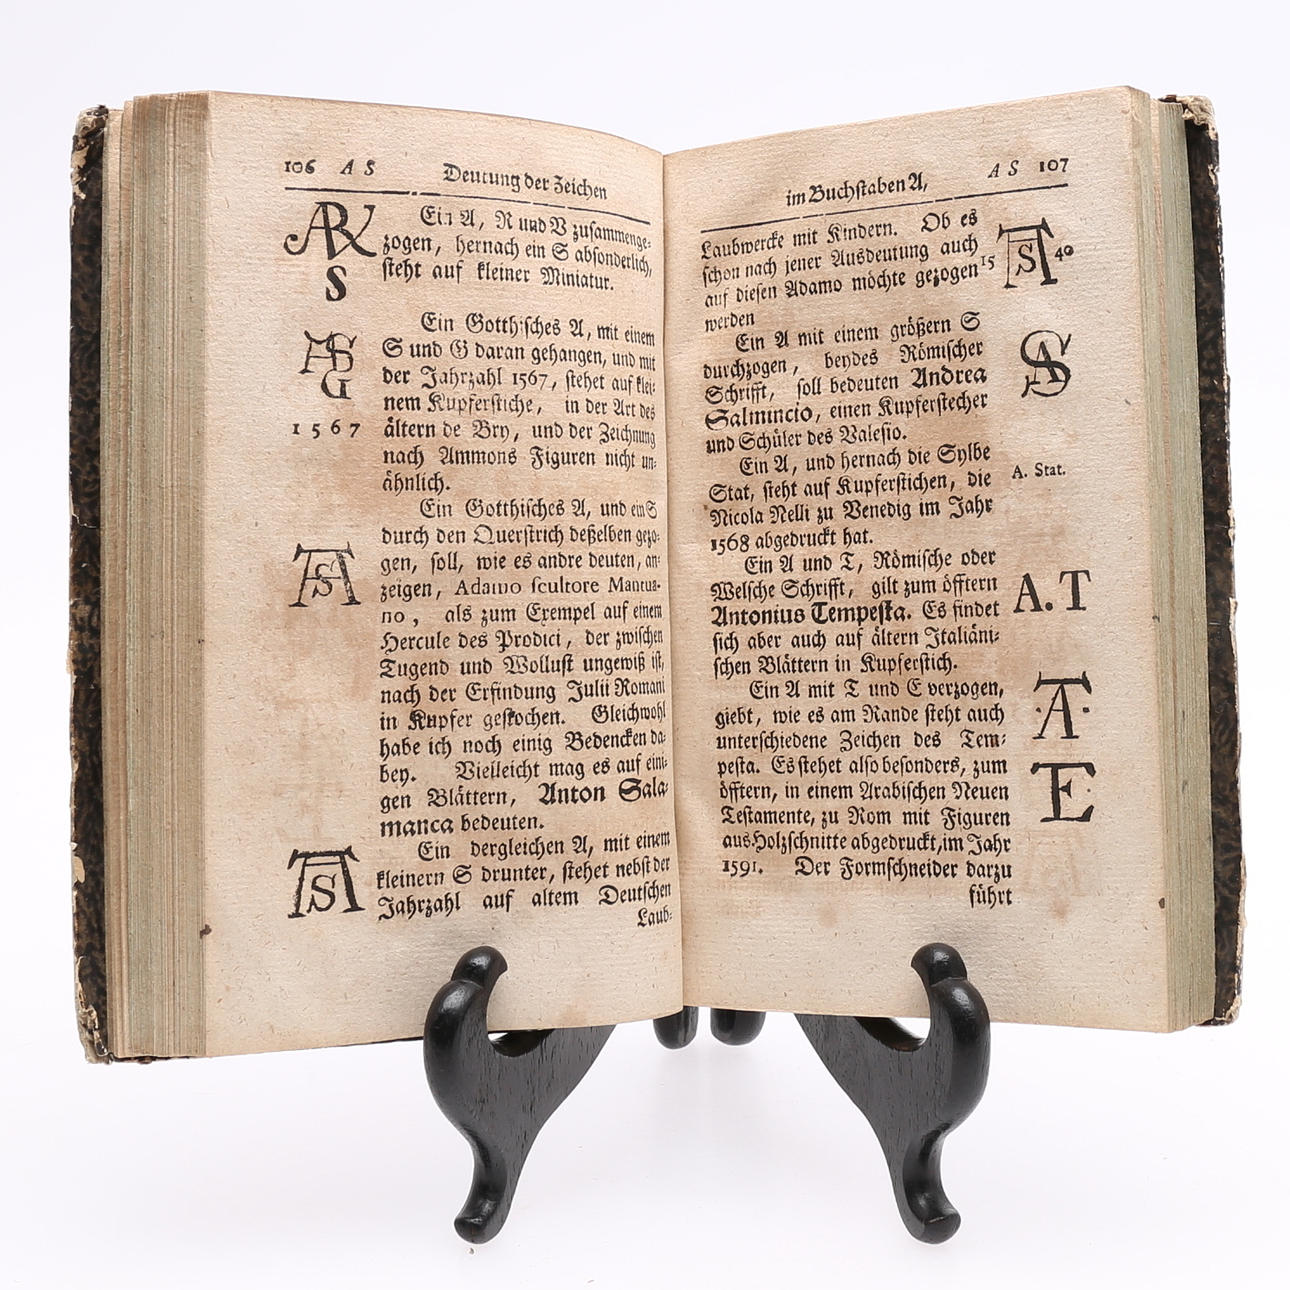 106 A S Deutung der Zeichen
Ein A, R und V zusammenge-
zogen, hernach ein S absonderlich,
steht auf kleiner Miniatur.
S
Ein Gotthisches A, mit einem
S und G daran gehangen, und mit
der Jahrzahl 1567, stehet auf klei-
nem Kupferstiche, in der Art des
1567
ältern de Bry, und der Zeichnung
nach Ammons Figuren nicht un-
ähnlich.
Ein Gotthisches A, und ein S
durch den Querstrich deßelben gezo-
gen, soll, wie es andre deuten, an-
zeigen, Adamo scultore Mantua-
no, als zum Exempel auf einem
Hercule des Prodici, der zwischen
Tugend und Wollust ungewiß ist,
nach der Erfindung Julii Romani
in Kupfer gestochen. Gleichwohl
habe ich noch einig Bedencken da-
bey. Vielleicht mag es auf eini-
gen Blättern, Anton Sala-
manca bedeuten.
Ein dergleichen A, mit einem
kleinern S drunter, stehet nebst der
Jahrzahl auf altem Deutschen
Laub-
im Buchstaben A, A S 107
Laubwercke mit Kindern. Ob es
schon nach jener Ausdeutung auch
auf diesen Adamo möchte gezogen
werden
15 40
Ein A mit einem größern S
durchzogen, beydes Römischer
Schrifft, soll bedeuten Andrea
Salmincio, einen Kupferstecher
und Schüler des Valesio.
Ein A, und hernach die Sylbe
Stat, steht auf Kupferstichen, die
A. Stat.
Nicola Nelli zu Venedig im Jahr
1568 abgedruckt hat.
Ein A und T, Römische oder
Welsche Schrifft, gilt zum öfftern
Antonius Tempesta. Es findet
A. T
sich aber auch auf ältern Italiäni-
schen Blättern in Kupferstich.
Ein A mit T und E verzogen,
giebt, wie es am Rande steht auch
unterschiedene Zeichen des Tem-
pesta. Es stehet also besonders, zum
öfftern, in einem Arabischen Neuen
Testamente, zu Rom mit Figuren
aus Holzschnitte abgedruckt, im Jahr
1591. Der Formschneider darzu
führt